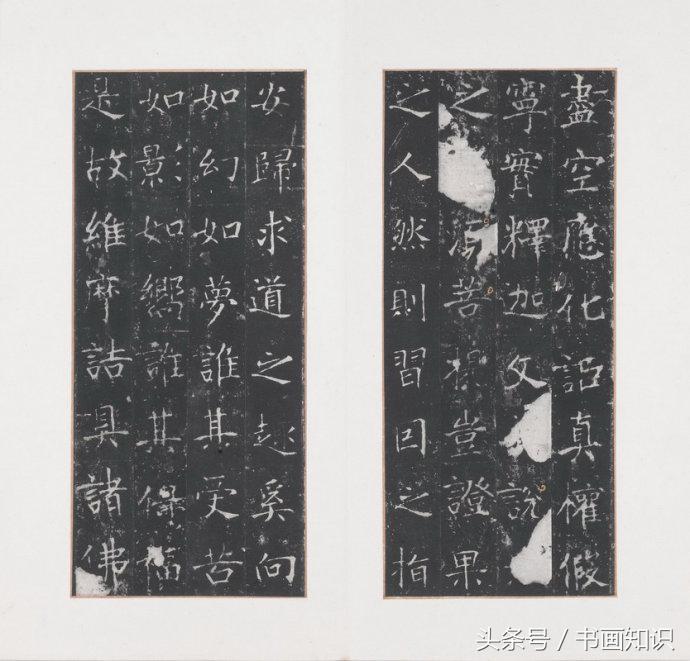 盡空應化詎真權假
寧實釋迦文說
之菩提豈證果
之人然則習因之指
安歸求道之趣奚向
如幻如夢誰其受苦
如影如嚮誰其得福
是故維摩詰具諸佛
头条号 / 书画知识